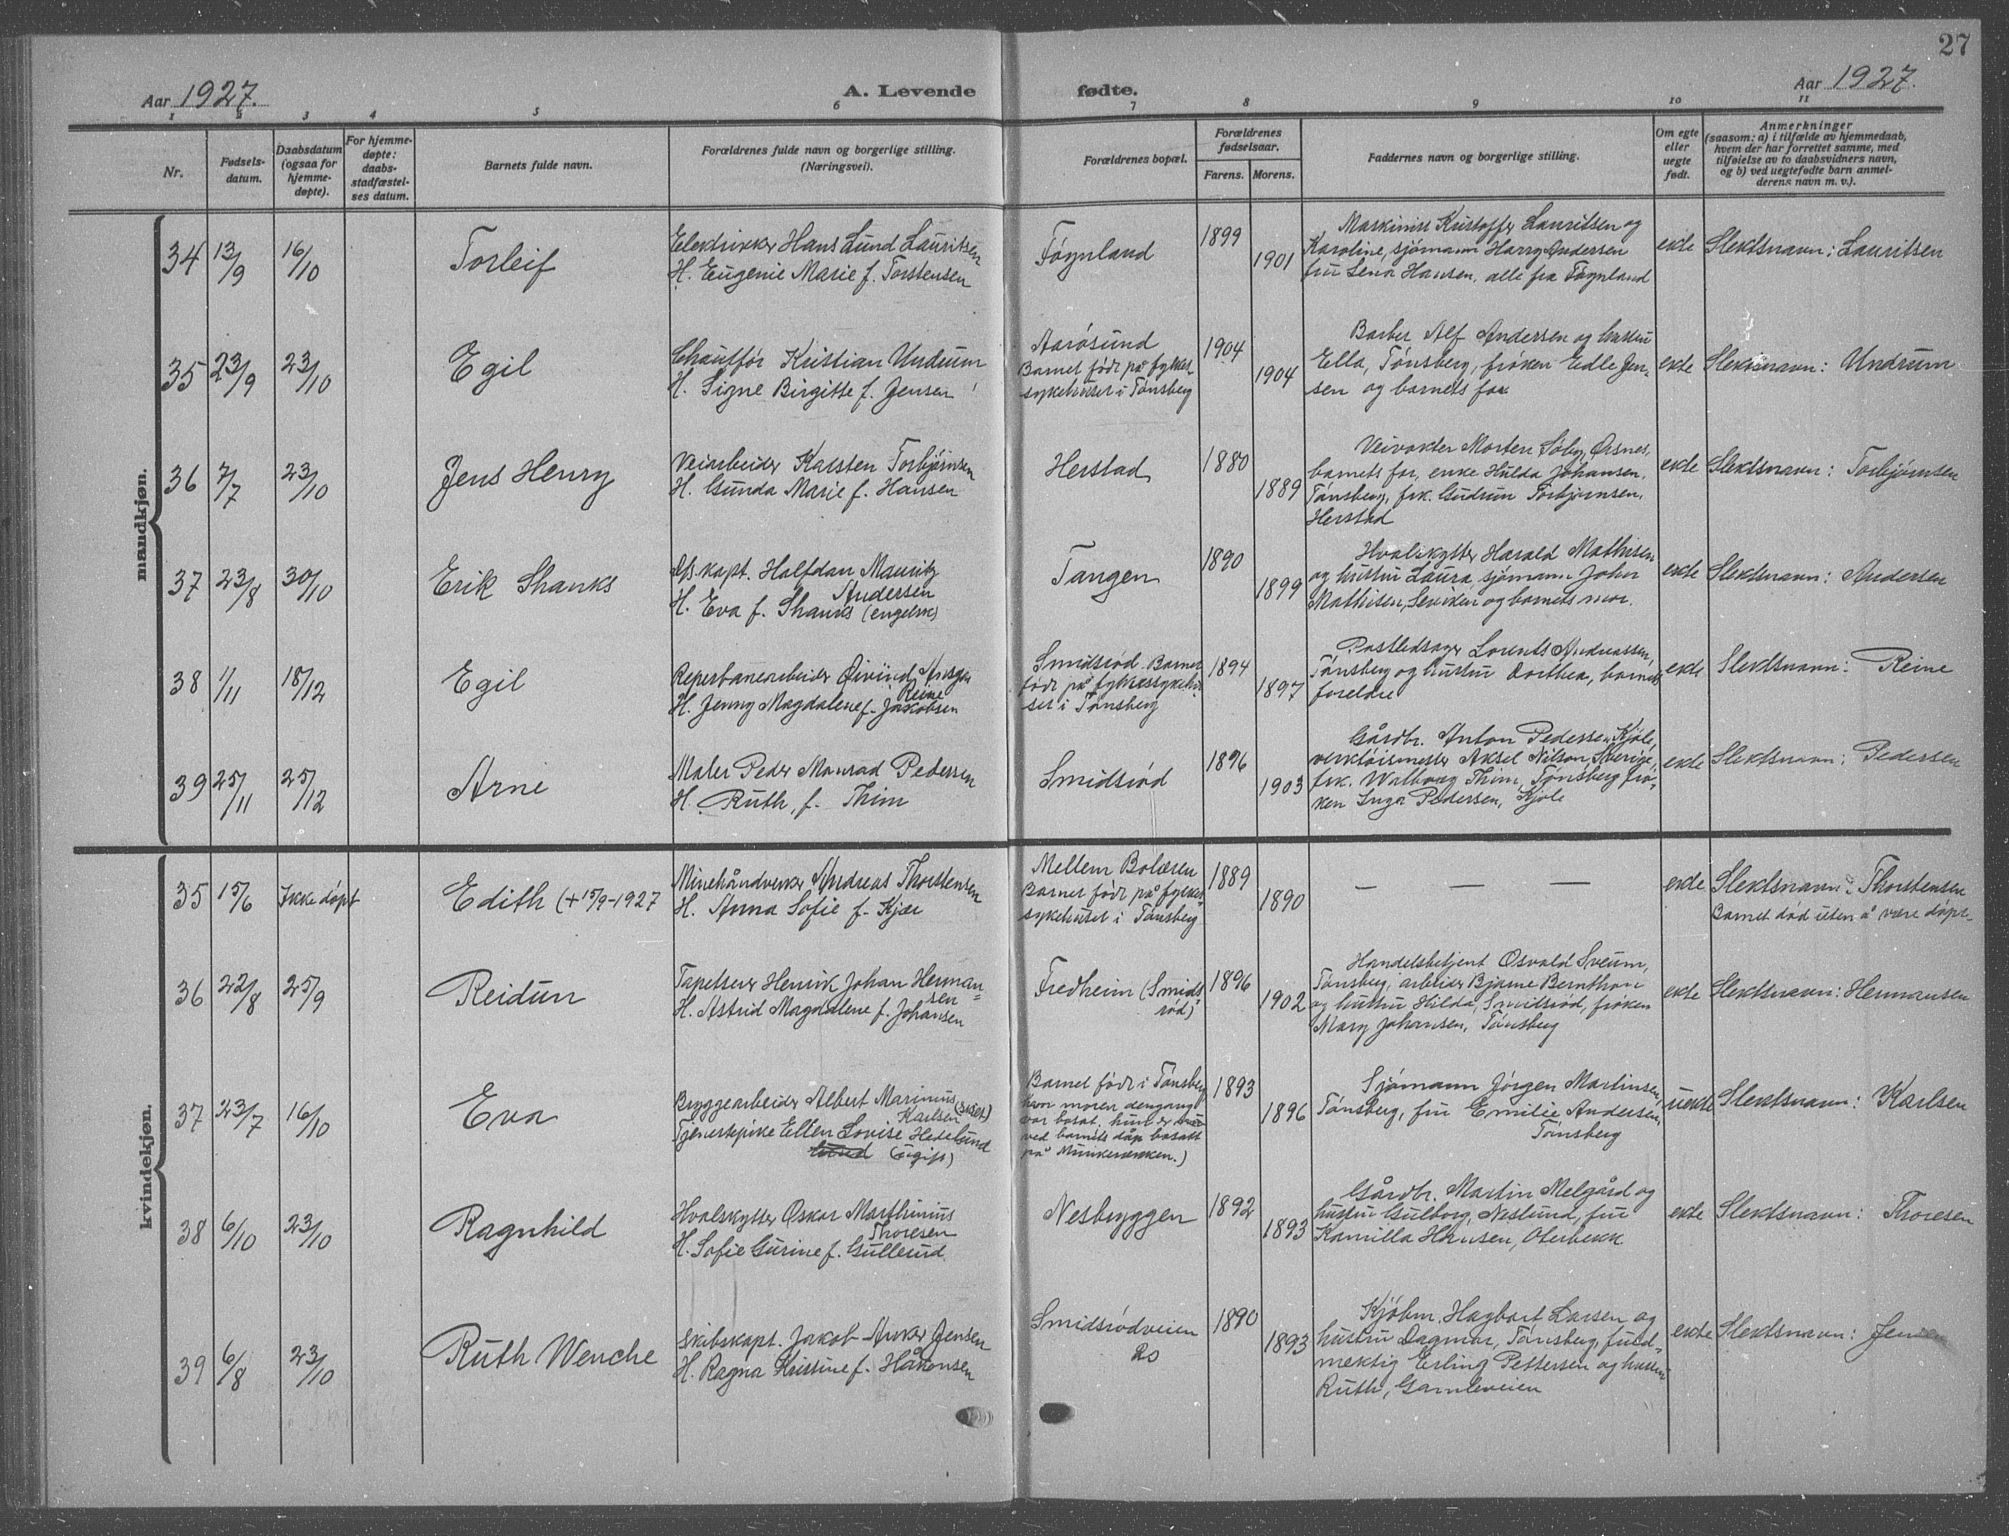 27
Aar 1927.
A. Levende
fødte.
Aar 1927.
1 2 3 4 5 6 7 8 9 10 11
Nr.
Fødsels-
datum.
Daabsdatum
(ogsaa for
hjemme-
døpte).
For hjemme-
døpte:
daabs-
stadfæstel-
ses datum.
Barnets fulde navn.
Forældrenes fulde navn og borgerlige stilling.
(Næringsvei).
Forældrenes bopæl.
Forældrenes
fødselsaar.
Farens. Morens.
Faddernes navn og borgerlige stilling.
Om egte
eller
uegte
født.
Anmerkninger
(saasom: a) i tilfælde av hjemmedaab,
hvem der har forrettet samme, med
tilføielse av to daabsvidners navn,
og b) ved uegtefødte barn anmel-
derens navn m. v.).
mandkjøn.
34 13/9 16/10 Torleif
Elektriker Hans Lund Lauritsen
H. Eugenie Marie f. Torstensen
Føynland
1899
1901
Maskinist Kristoffer Lauritsen og
Karoline, sjømann Harry Andersen
fru Lena Hansen, alle fra Føynland
ekte
Slektsnavn: Lauritsen
35 23/9 23/10 Egil
Chauffør Kristian Undrum
H. Signe Birgitte f. Jensen
Aarøsund
Barnet født på fylkes-
sykehuset i Tønsberg
1904
1904
Barber Alf Andersen og hustru
Ella, Tønsberg, frøken Edle Jen-
sen og barnets far
ekte
Slektsnavn: Undrum
36 7/7 23/10 Jens Henry
Veiarbeider Karsten Torbjørnsen
H. Gunda Marie f. Hansen
Herstad
1880
1889
Veivokter Morten Søby, Øsnes,
barnets far, enke Hulda Johansen,
Tønsberg, frk. Gudrun Torbjørnsen,
Herstad
ekte
Slektsnavn: Torbjørnsen
37 23/8 30/10 Erik Shanks
kapt. Halfdan Mauritz
Andersen
H. Eva f. Shanks (engelsk)
Tangen
1890
1899
Hvalskytter Harald Mathisen
og hustru Laura, sjømann John
Mathisen, og barnets mor.
ekte
Slektsnavn: Andersen
38 1/11 18/12 Egil
Reperbanearbeider Øivind Ansgar
Reine
H. Jenny Magdalene f. Jakobsen
Smidsrød. Barnet
født på fylkessykehu-
set i Tønsberg
1894
1897
Postledsager Lorents Andreassen,
Tønsberg og hustru Dorthea, barnets
foreldre
ekte
Slektsnavn: Reine
39 25/11 25/12 Arne
Maler Peder Monrad Pedersen
H. Ruth, f. Thim
Smidsrød
1896
1903
Gårdbr. Anton Pedersen, Kjøle,
verktøismester Aksel Nilson, Sverige,
frk. Walborg Thim, Tønsberg, frø-
ken Inga Pedersen, Kjøle
ekte
Slektsnavn: Pedersen
kvindekjøn.
35 15/6 Ikke døpt Edith (+ 15/9-1927
Minehåndverker Andreas Thorstensen
H. Anna Sofie f. Kjær
Mellem Bolæren
Barnet født på fylkes-
sykehuset i Tønsberg
1889
1890
— — —
ekte
Slektsnavn: Thorstensen
Barnet død uten å være døpt.
36 22/8 25/9 Reidun
Tapetserer Henrik Johan Herman-
sen
H. Astrid Magdalene f. Johansen
Fredheim (Smids-
rød)
1896
1902
Handelsbetjent Osvald Sveum,
Tønsberg, arbeider Bjarne Bernthon
og hustru Hilda, Smidsrød, frøken
Mary Johansen, Tønsberg
ekte
Slektsnavn: Hermansen
37 23/7 16/10 Eva
Bryggearbeider Albert Marinius
Karlsen
Tjenestepike Ellen Lovise Hedelund
(ugift)
Barnet født i Tønsberg
hvor moren dengang
var bosat. Hun er
ved barnets dåp bosatt
på Munkerekken.)
1893
1896
Sjømann Jørgen Martinsen,
Tønsberg, fru Emilie Andersen,
Tønsberg
uekte
Slektsnavn: Karlsen
38 6/10 23/10 Ragnhild
Hvalskytter Oskar Marthinius
Thoresen
H. Sofie Gurine f. Gullesud.
Nesbryggen
1892
1893
Gårdbr. Martin Melgård og
hustru Gulborg, Neslund, fru
Kamilla Hansen, Oterbekk
ekte
Slektsnavn: Thoresen
39 6/8 23/10 Ruth Wenche
Skibskapt. Jakob Anker Jensen
H. Ragna Kristine f. Håkonsen
Smidsrødveien
20
1890
1893
Kjøbm. Hagbart Larsen og
hustru Dagmar, Tønsberg, fuld-
mektig Erling Pettersen og hustru
Ruth, Gamleveien
ekte
Slektsnavn: Jensen